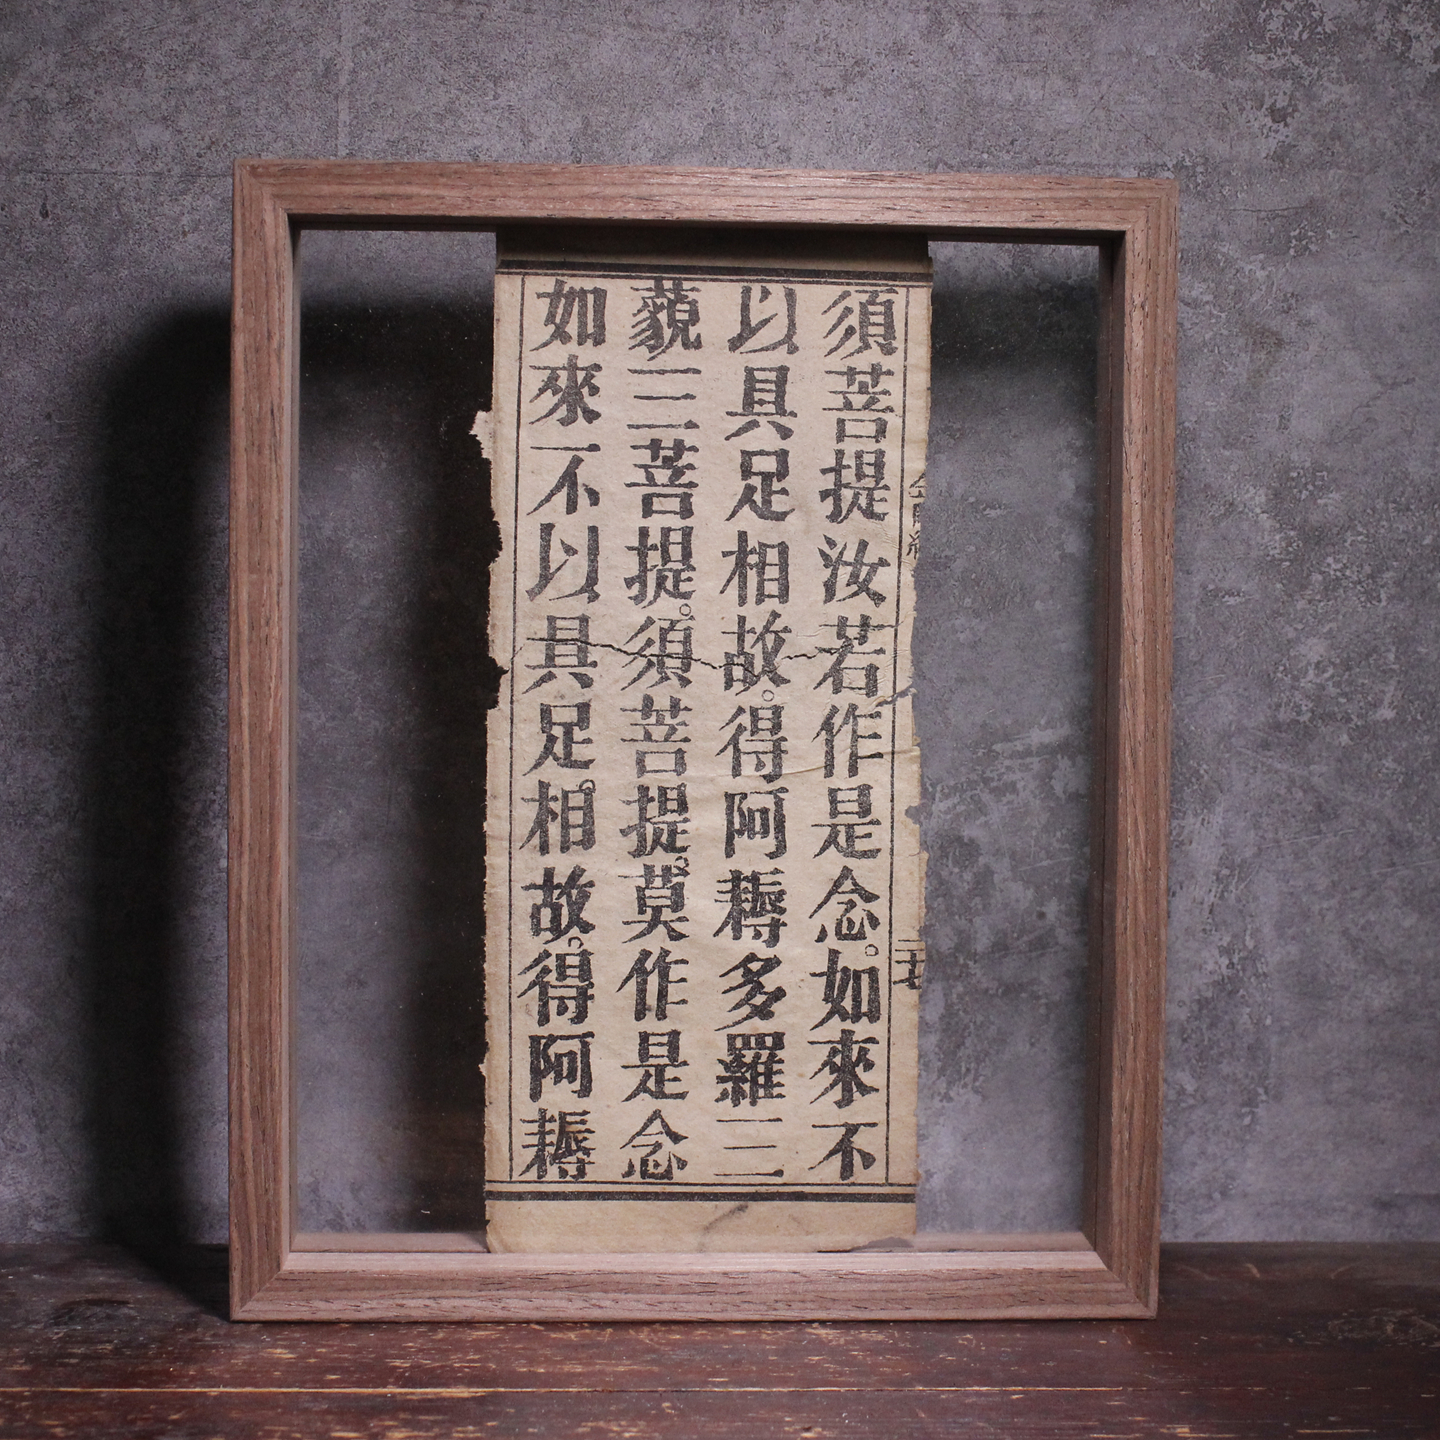 須菩提汝若作是念。如來不
以具足相故。得阿耨多羅三
藐三菩提。須菩提。莫作是念
如來不以具足相故。得阿耨